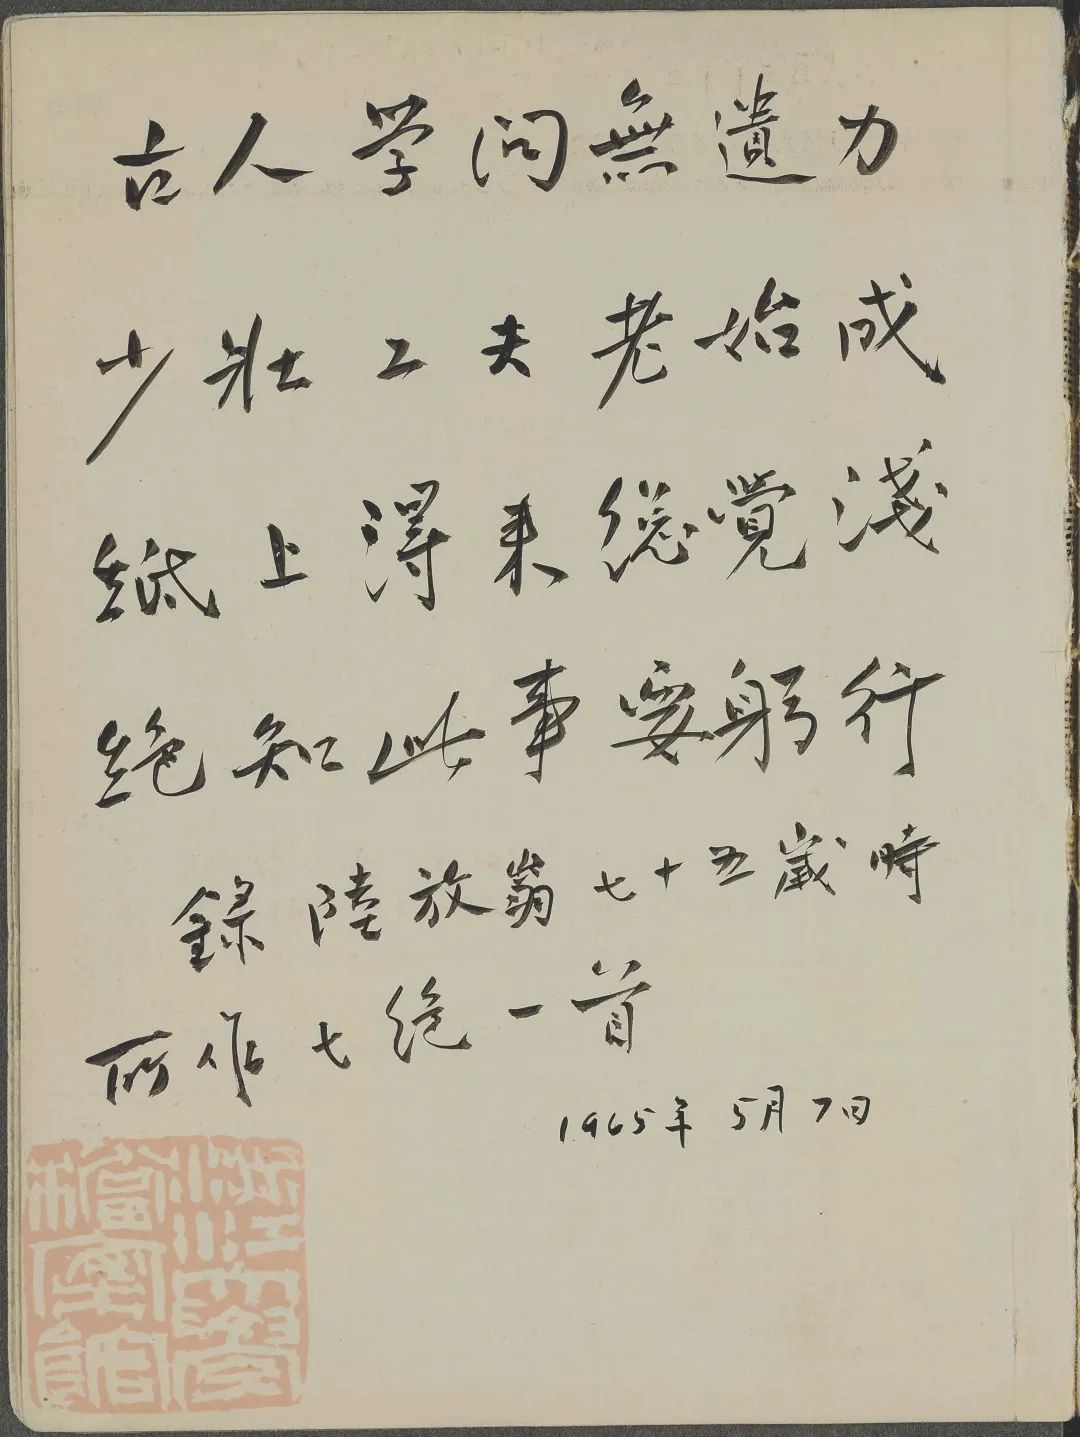 古人学问無遺力
少壯工夫老始成
紙上得来總覺淺
絶知此事要躬行
録陸放翁七十五歲時
所作七绝一首
1965年5月7日